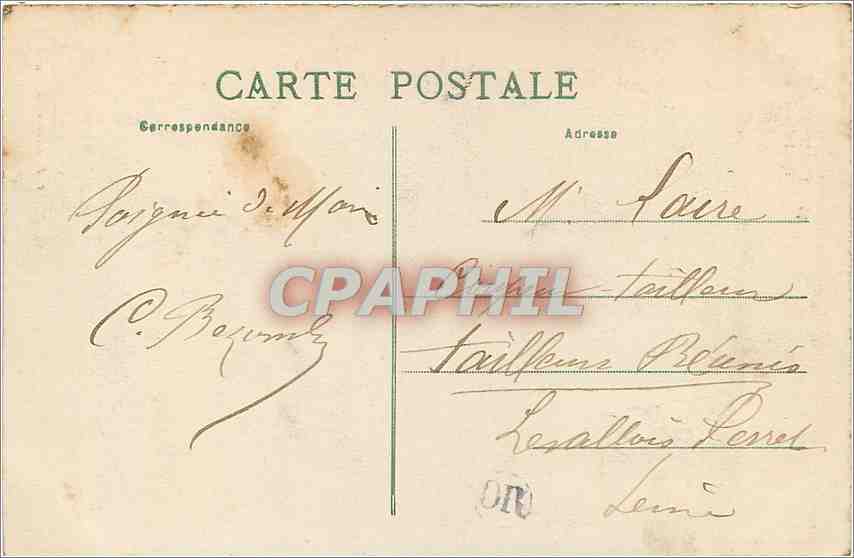 CARTE POSTALE
Correspondance
Adresse
Poignée de Main
C.
M. Faire
tailleur
tailleurs Réunis
Levallois Perret
Seine
CPAPHIL
OR